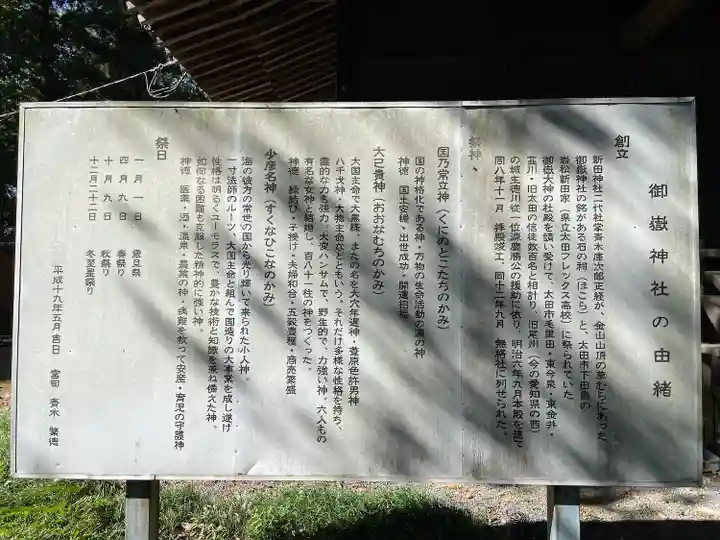 御嶽神社の由緒
創立
新田神社二代社掌斉木廉次郎正軽が、金山山頂の草むらにあった
御嶽神社の銘がある石の祠(ほこら)と、太田市下田島の
岩松新田家(県立太田フレックス高校)に祭られていた
御嶽大神の社殿を請い受けて、太田市毛里田・東今泉・東金井・
韮川・旧太田の信徒数百名と相計り、旧尾州(今の愛知県の西)
の城主徳川従一位源慶勝公の援助に依り、明治六年九月本殿を建て
同八年十一月 拝殿竣工、同十二年九月 無格社に列せられた。
祭神
国乃常立神(くにのとこたちのかみ)
国の神格化である神・万物の生命活動の源の神
神徳 国土安穏・出世成功・開運招福
大己貴神(おおなむちのかみ)
大国主命で大黒様、またの名を大穴牟遅神・葦原色許男神
八千戈神・大物主命などともいう。それだけ多様な性格を持ち、
霊的な力も強力。大変ハンサムで、野生的で、力強い神。六人もの
有名な女神と結婚し、百八十一柱の神をつくった。
神徳 縁結び・子授け・夫婦和合・五穀豊穣・商売繁盛
少彦名神(すくなひこなのかみ)
海の彼方の常世の国から光り輝いて来られた小人神。
一寸法師のルーツ、大国主命と組んで国造りの大事業を成し遂げ
性格は明るくユーモラスで、豊かな技術と知識を兼ね備えた神。
如何なる困難も克服した精神的に強い神。
神徳 医薬・酒・温泉・農業の神・病難を救って安産・育児の守護神
祭日
一月一日 歳旦祭
四月九日 春祭り
十月九日 秋祭り
十二月二十二日 冬至星祭り
平成十九年五月吉日 宮司 斉木 繁徳